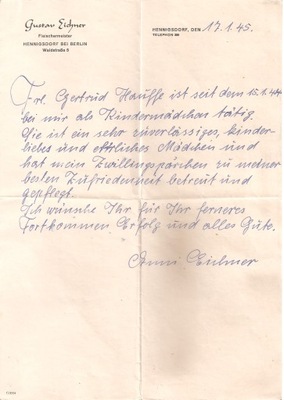 Gustav Eichner
Fleischermeister
HENNIGSDORF BEI BERLIN
Waldstraße
HENNIGSDORF, DEN 17.1.45.
TELEPHON
Frl. Gertrud Hauffe ist seit dem 15.1.44
bei mir als Kindermädchen tätig.
Sie ist ein sehr zuverlässiges, kinder-
liebes und ehrliches Mädchen und
hat mein Zwillingspärchen zu meiner
besten Zufriedenheit betreut und
gepflegt.
Ich wünsche Ihr für Ihr ferneres
Fortkommen Erfolg und alles Gute.
Eichner